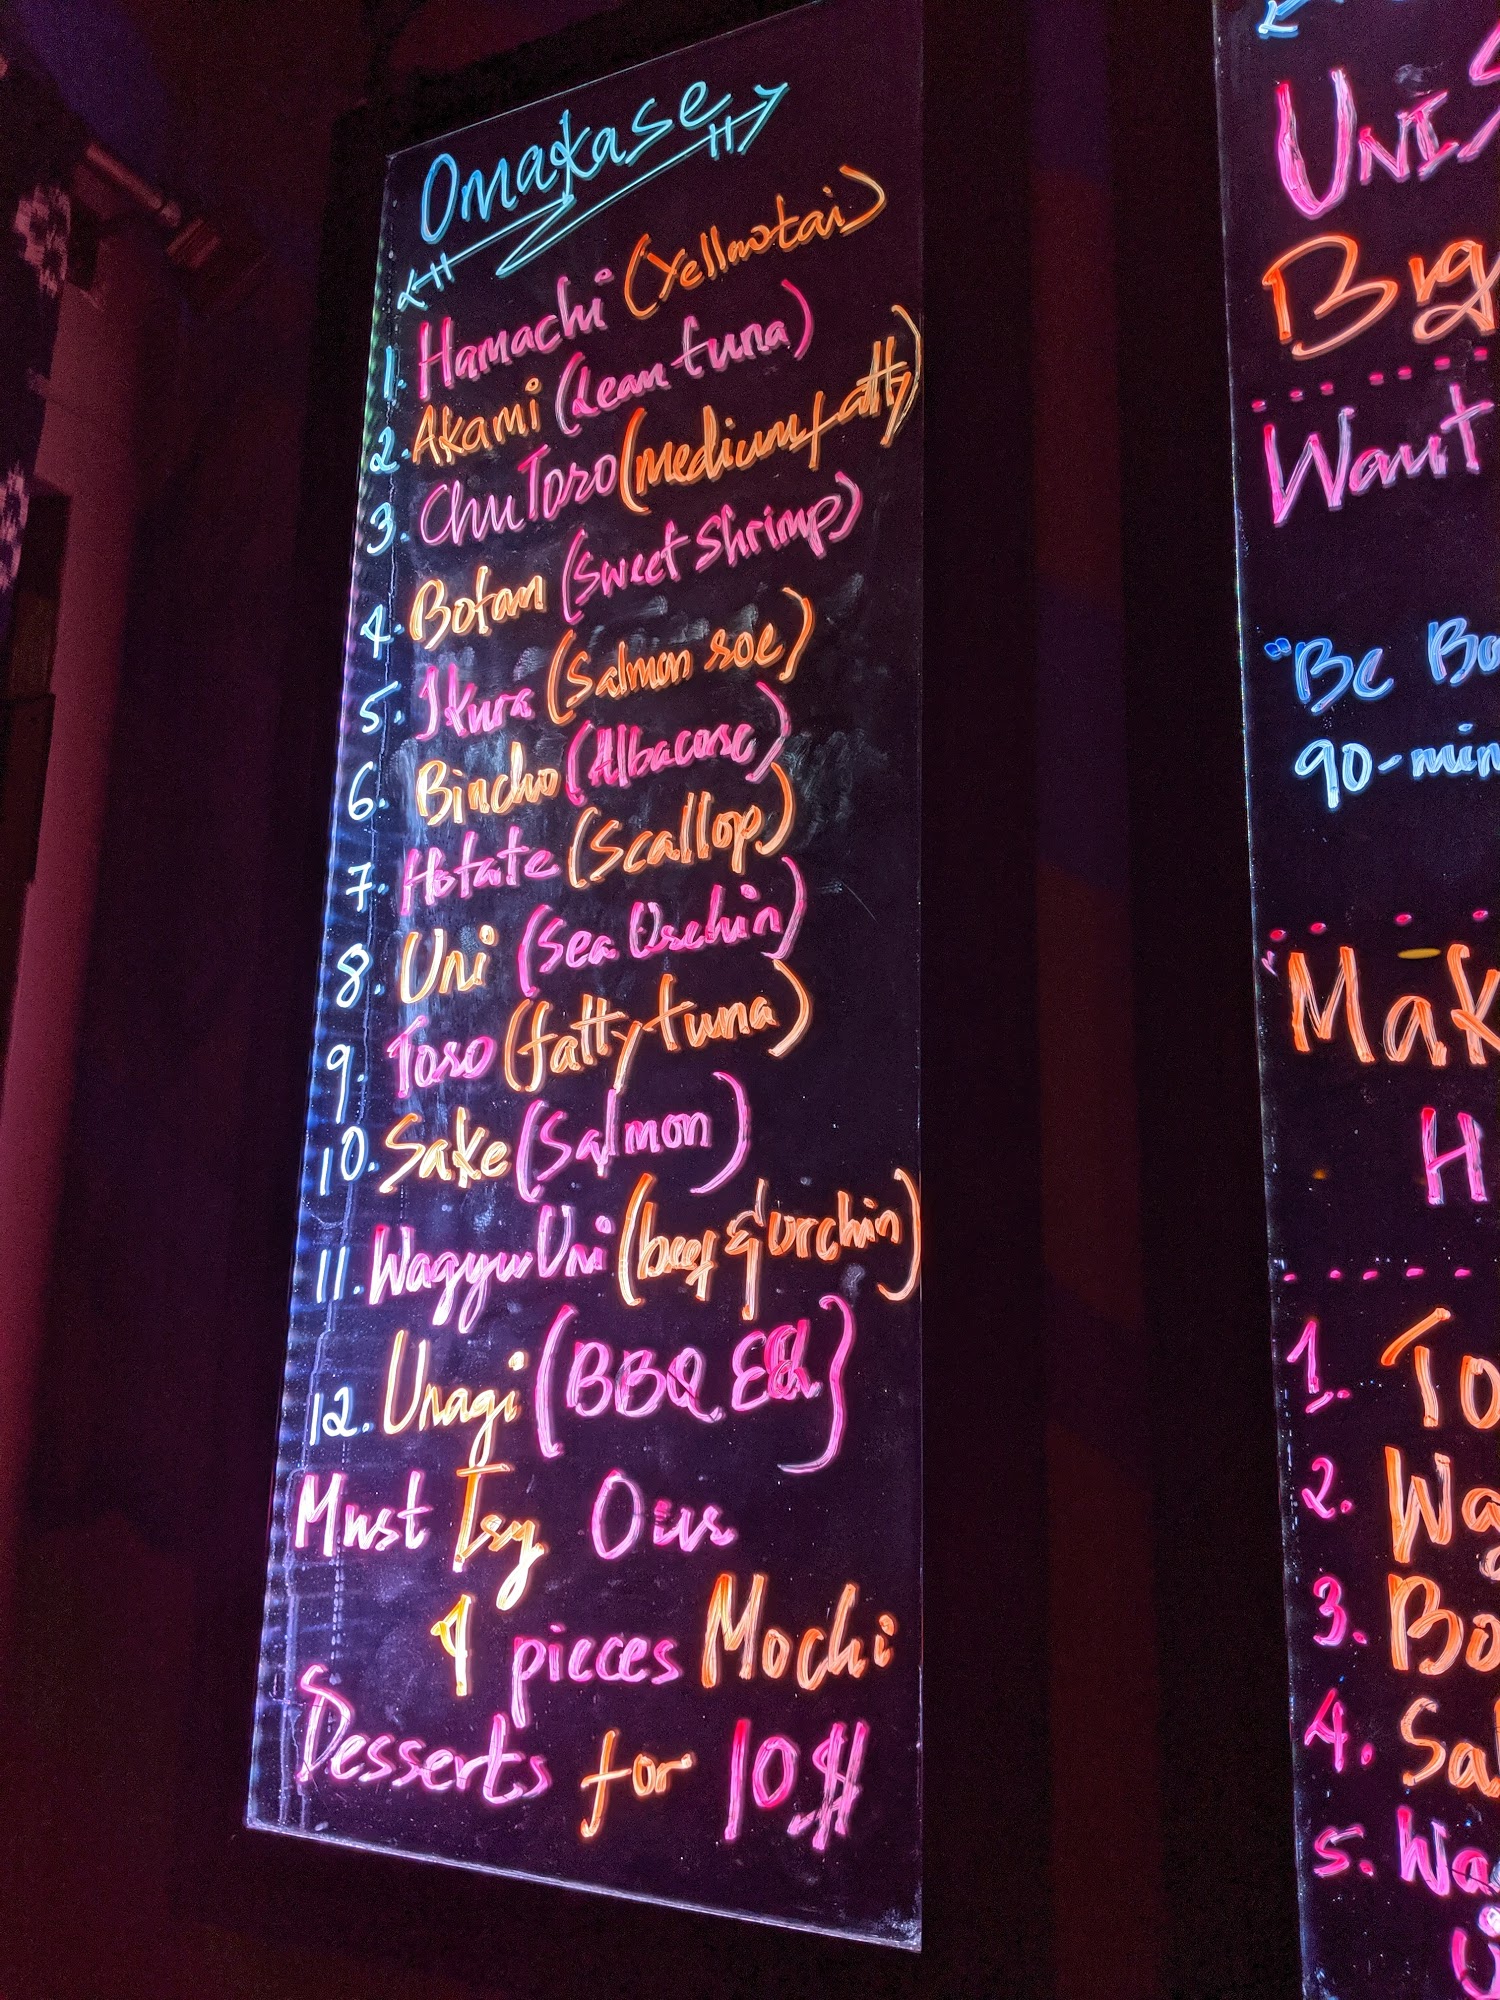 Omakase
1. Hamachi (Yellwotai)
2. Akami (Lean tuna)
3. Chu Toro (medium fatty)
4. Botan (Sweet Shrimp)
5. Ikura (Salmon roe)
6. Bincho (Albacore)
7. Hotate (Scallop)
8. Uni (Sea Urchin)
9. Toro (fatty tuna)
10. Sake (Salmon)
11. Wagyu Uni (beef & urchin)
12. Unagi (BBQ Eel)
Must Try Our
4 pieces Mochi
Desserts for 10$
Uni S
Big
Want
"Be Bo
90-min
"Mak
H
1. To
2. Wa
3. Bo
4. Sal
5. Wa